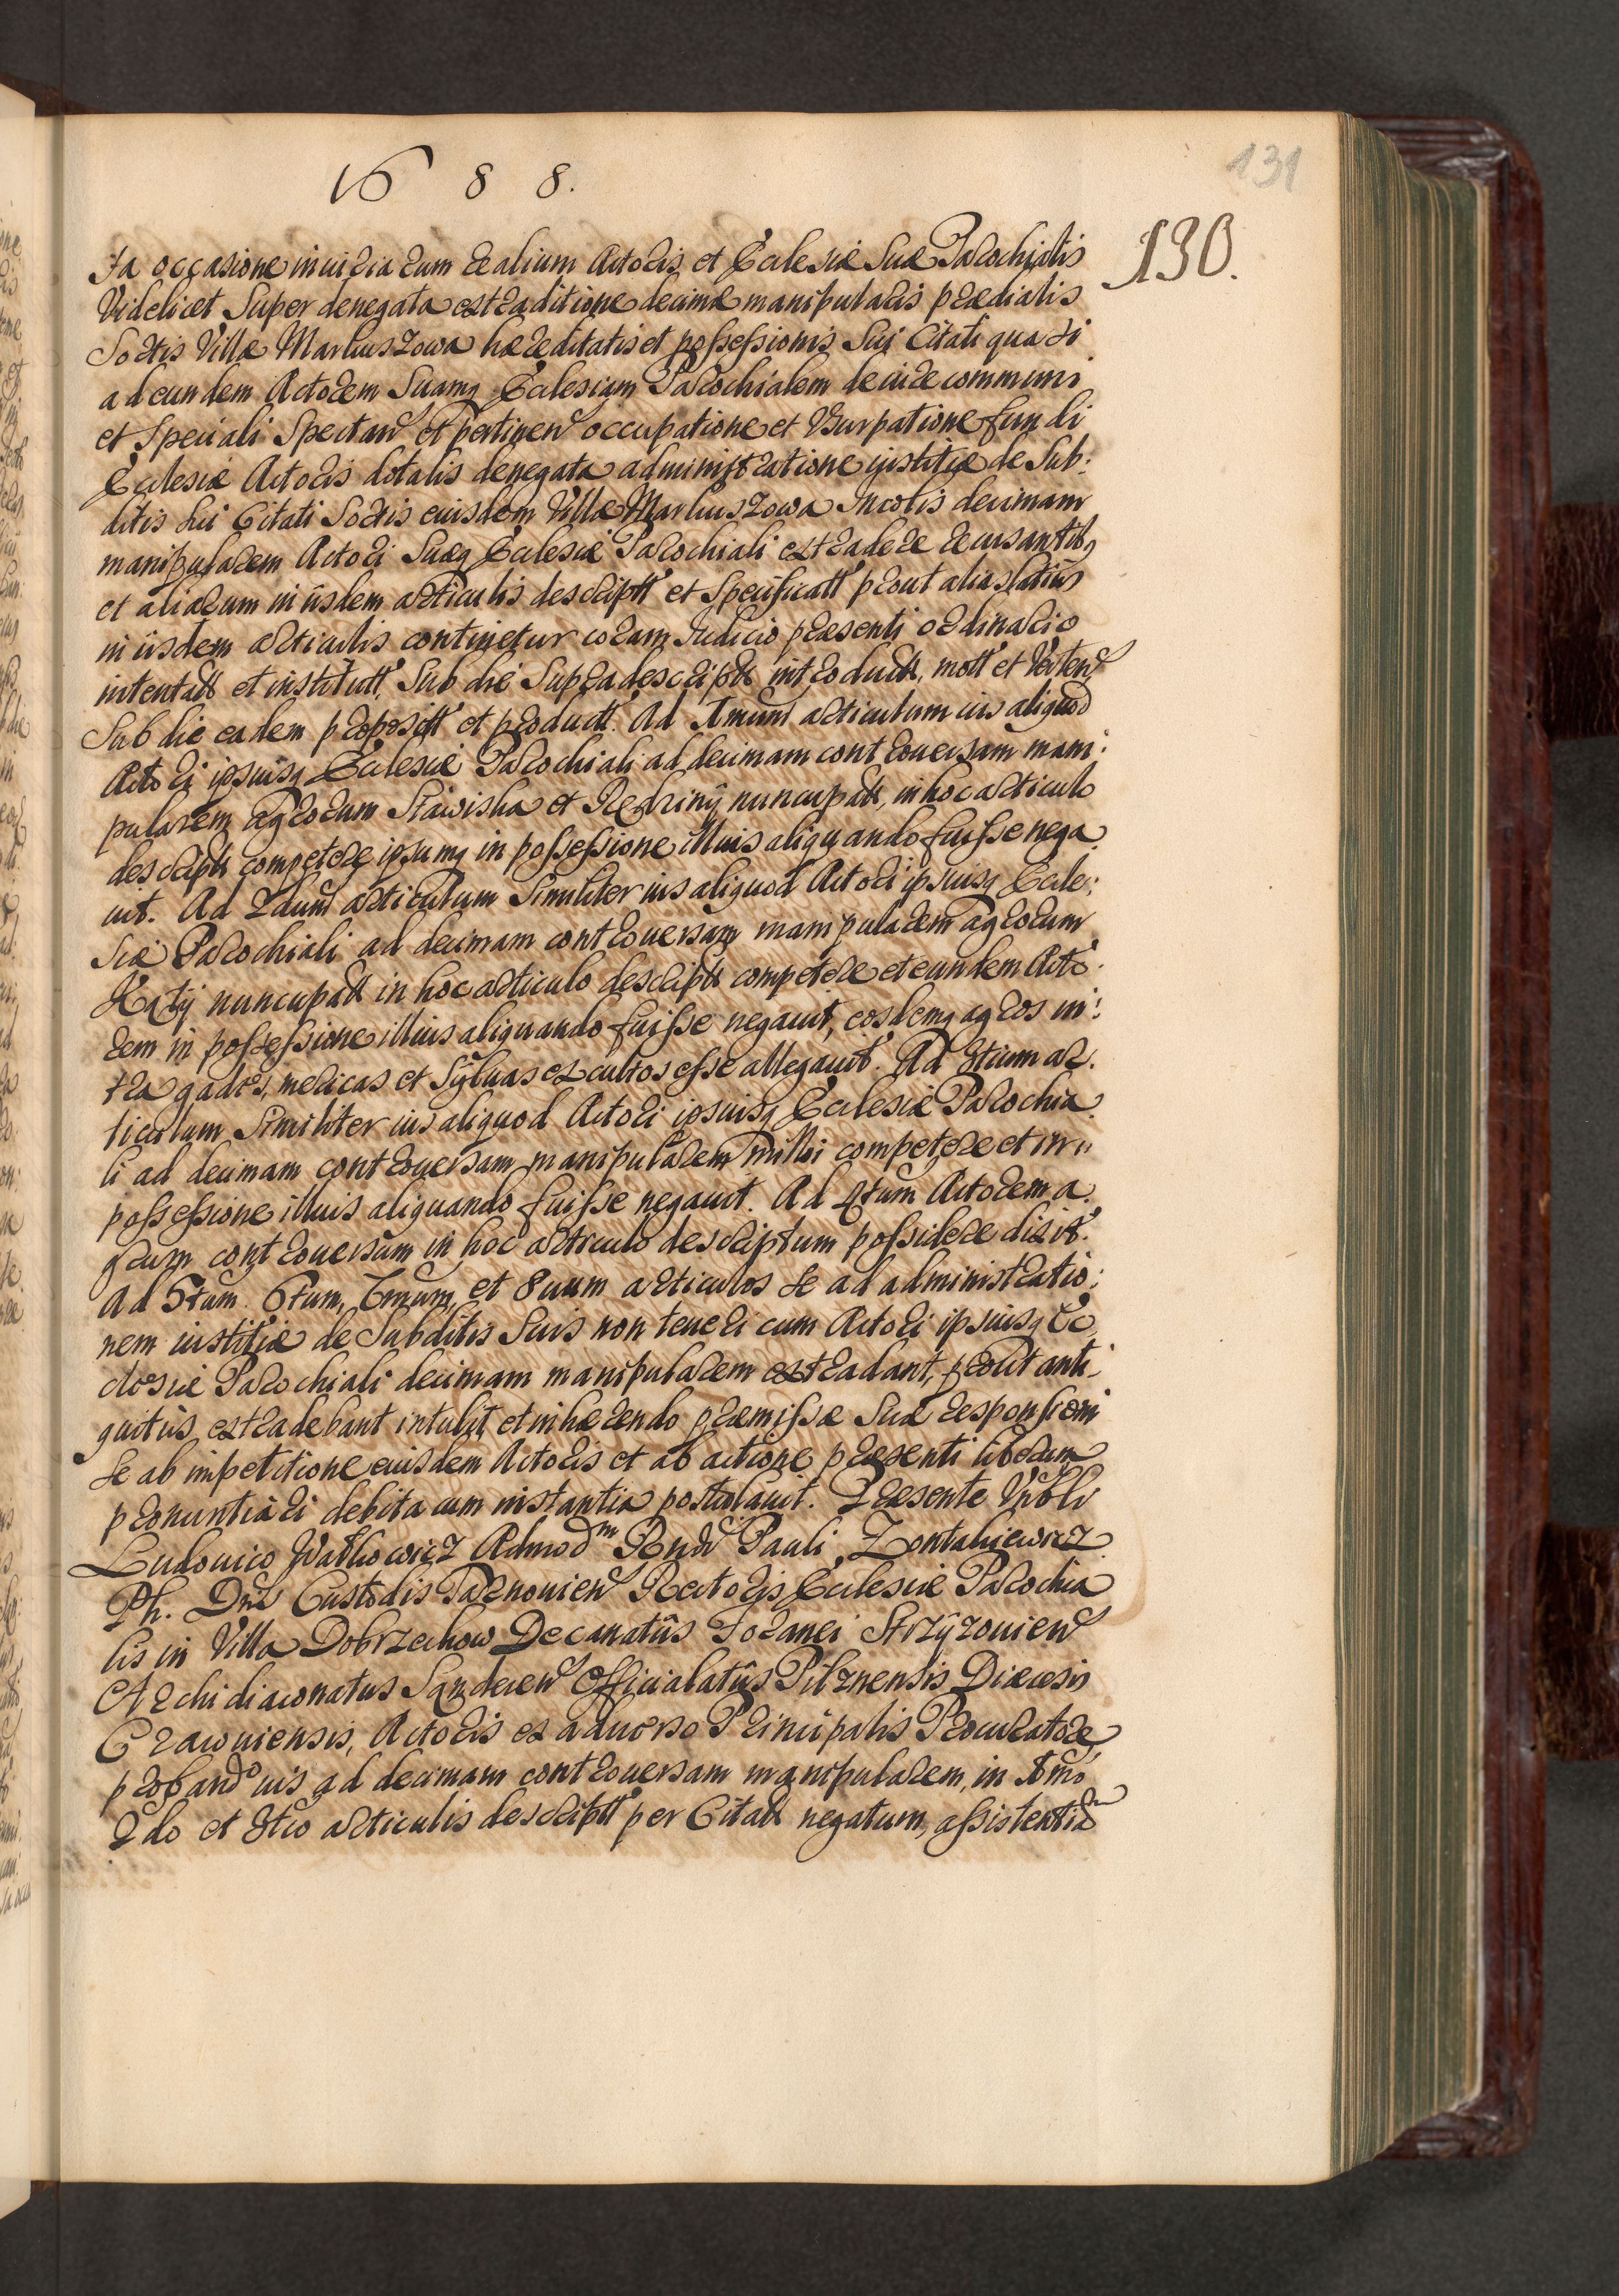 1688.
131
130.
ta occasione iniuriarum realium Actoris et Ecclesiæ Suæ Parochialis
Videlicet Super denegata extraditione decimæ manipularis prædialis
Sortis Villæ Markuszowa hæreditatis et possessionis Sui Citati quasi
ad eundem Actorem Suamq Ecclesiam Parochialem de iure communi
et Speciali Spectan et pertinen occupatione et Vsurpatione fundi
Ecclesiæ Actoris dotalis denegata administratione iustitiæ de Sub:
ditis Sui Citati Sortis eiusdem Villæ Markuszowa Incolis decimam
manipularem Actori Suæq Ecclesiæ Parochiali extradere recusantibq
et aliarum in iisdem articulis descriptt et Specificatt prout alias latius
in iisdem articulis continetur coram Iudicio præsenti ordinario
intentatt et institutt, Sub die Supra descriptt introductt, mott et Verten
Sub die eadem proposit et productt. Ad 1mum articulum ius aliquod
Actori ipsiusq Ecclesiæ Parochiali ad decimam controuersam mani:
pularem agrorum Stawiska et Redziny nuncupatt, in hoc articulo
descriptt competere ipsumq in possessione illius aliquando fuisse nega:
uit. Ad 2dum articulum Similiter ius aliquod Actori ipsiusq Eccle:
siæ Parochiali ad decimam controuersam manipularem agrorum
Katy nuncupatt in hoc articulo descriptt competere et eundem Acto:
rem in possessione illius aliquando fuisse negauit, eosdemq agros in:
tra gades, mericas et Syluas excultos esse allegauit. Ad 3tium ar:
ticulum Similiter ius aliquod Actori ipsiusq Ecclesiæ Parochia:
li ad decimam controuersam manipularem milli competere et in
possessione illius aliquando fuisse negauit. Ad 4tum Actorem a:
grum controuersum in hoc articulo descriptum possidere dixit.
Ad 5tum. 6tum, 7mum, et 8uum articulos Se ad administratio:
nem iustitiæ de Subditis Suis non teneri cum Actori ipsiusq Ec:
clesiæ Parochiali decimam manipularem extradant, prout anti:
quitus extradebant intulit, et inhærendo præmissæ Suæ responsioni
Se ab impetitione eiusdem Actoris et ab actione præsenti liberum
pronuntiari debita cum instantia postulauit. Præsente Vrbli
Ludouico Watkowicz Admodm Rndi Pauli Zontakiewicz
Ph. Dris Custodis Tarnouien Rectoris Ecclesiæ Parochia
lis in Villa Dobrzechow Decanatûs Foranei Strzyzouien
Archidiaconatus Sandecen Officialatûs Pilznensis Diæcesis
Cracouiensis, Actoris ex aduerso Principalis Procuratore,
probando ius ad decimam controuersam manipularem, in 1mo
2do et 3tio articulis descriptt per Citatt negatum, assistentia